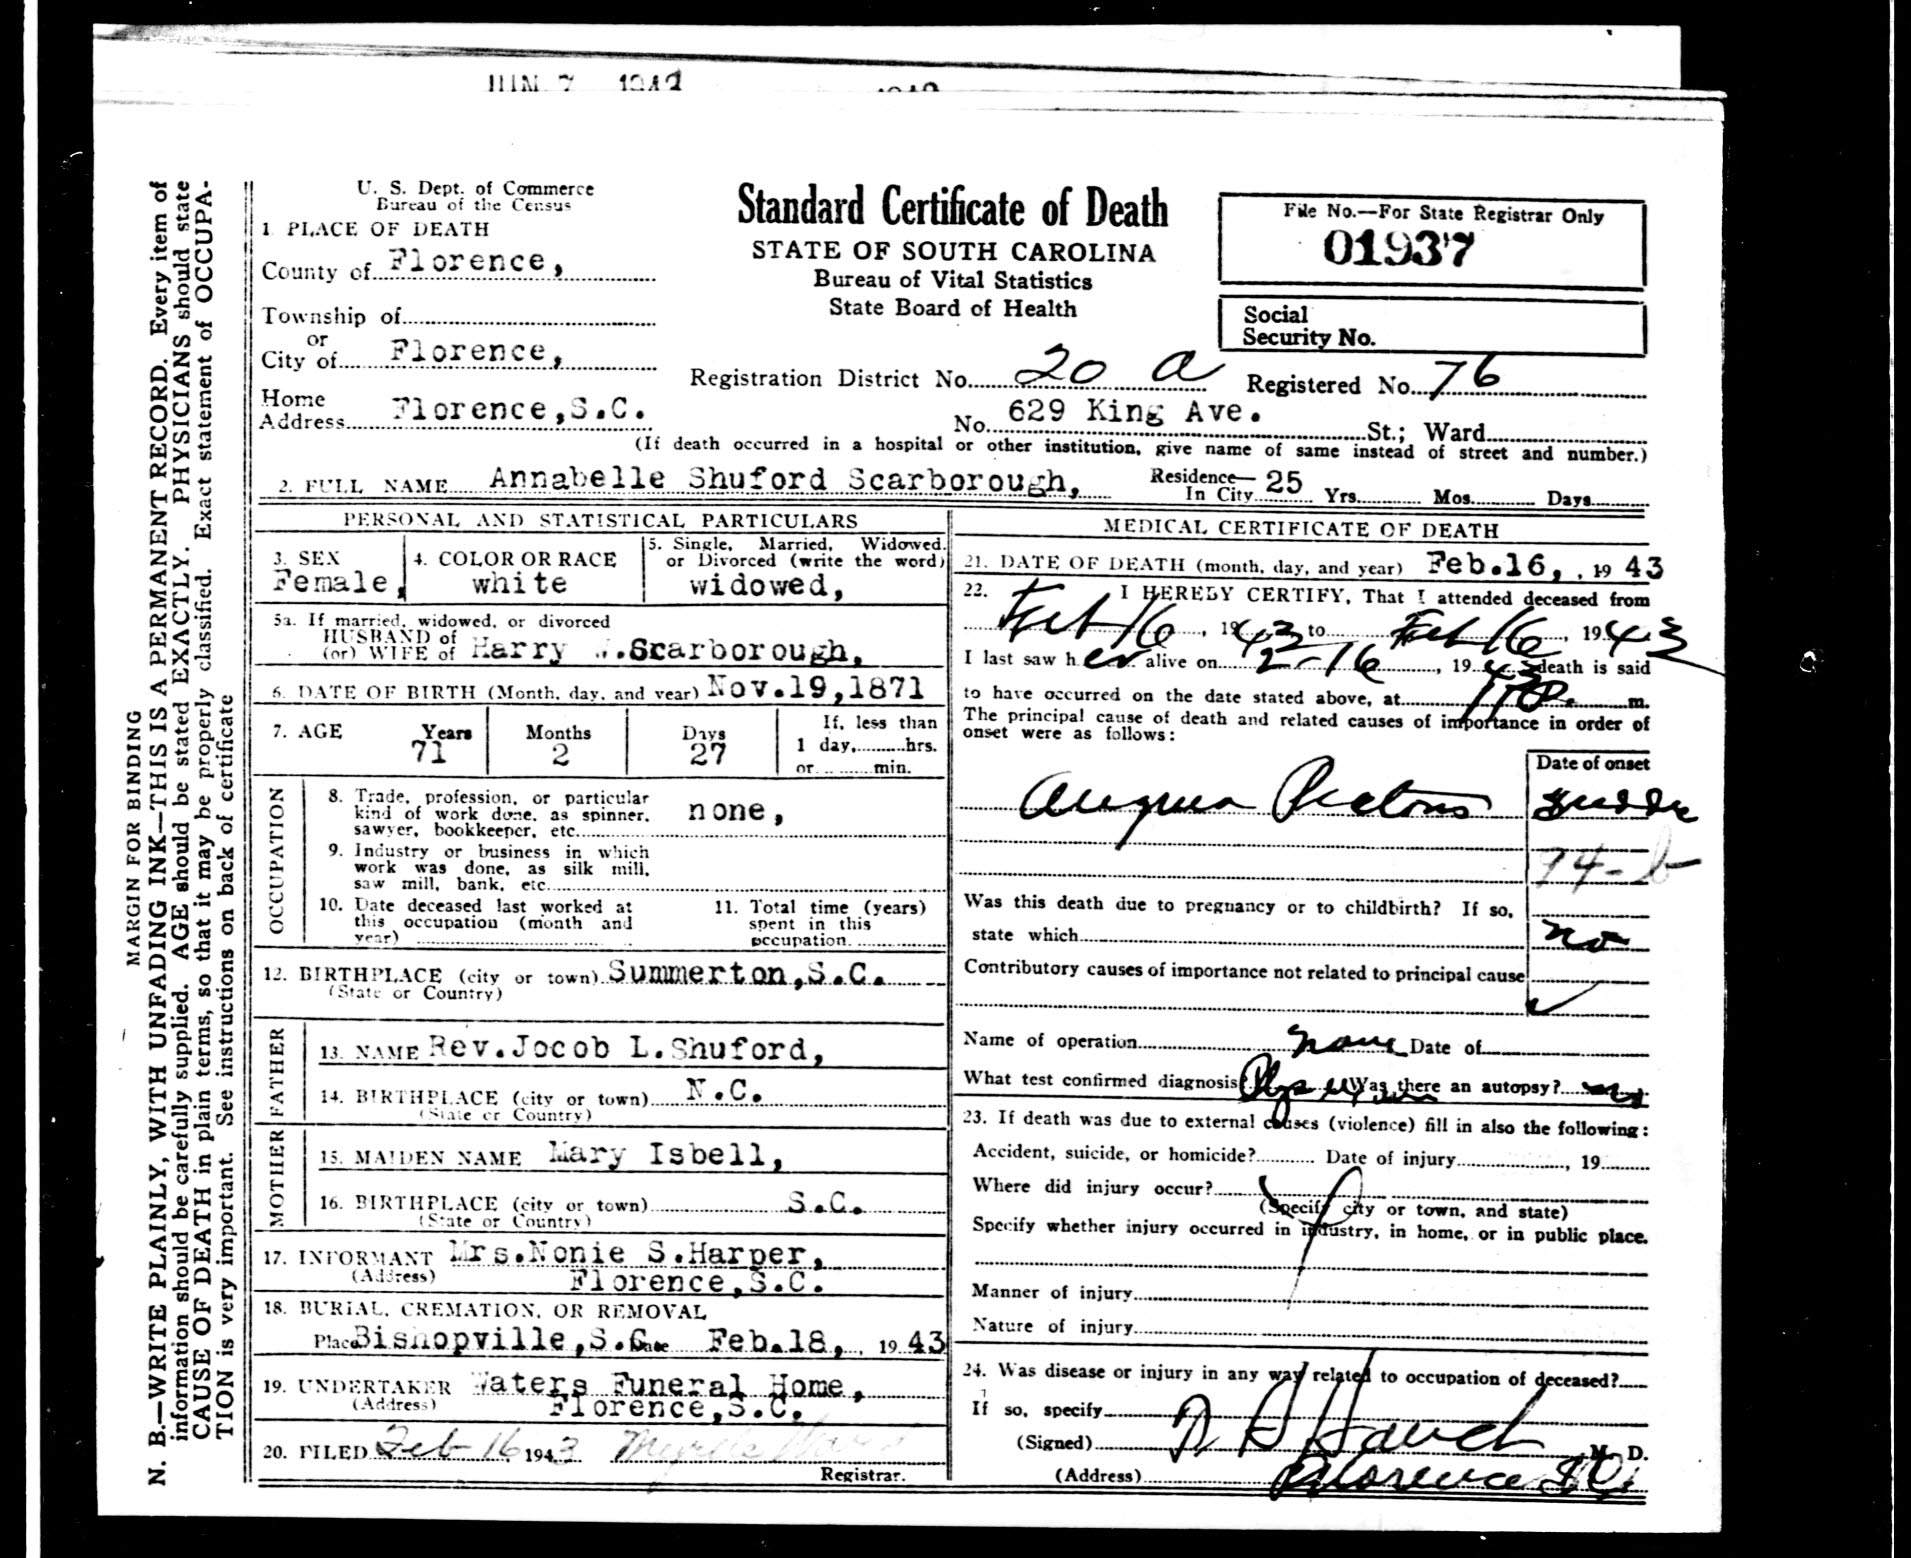 JUN 7 1942
U. S. Dept. of Commerce
Bureau of the Census
Standard Certificate of Death
STATE OF SOUTH CAROLINA
Bureau of Vital Statistics
State Board of Health
File No.—For State Registrar Only
01937
Social
Security No.
1. PLACE OF DEATH
County of Florence,
Township of
or
City of Florence,
Registration District No. 20 a Registered No. 76
Home
Address Florence,S.C.
No. 629 King Ave. St.; Ward
(If death occurred in a hospital or other institution, give name of same instead of street and number.)
2. FULL NAME Annabelle Shuford Scarborough, Residence— In City 25 Yrs. Mos. Days
PERSONAL AND STATISTICAL PARTICULARS
3. SEX
Female,
4. COLOR OR RACE
white
5. Single, Married, Widowed,
or Divorced (write the word)
widowed,
5a. If married, widowed, or divorced
HUSBAND of
(or) WIFE of Harry .Scarborough,
6. DATE OF BIRTH (Month, day, and year) Nov.19,1871
7. AGE Years Months Days If less than
71 2 27 1 day, hrs.
or min.
OCCUPATION
8. Trade, profession, or particular
kind of work done, as spinner, none,
sawyer, bookkeeper, etc.
9. Industry or business in which
work was done, as silk mill,
saw mill, bank, etc.
10. Date deceased last worked at
this occupation (month and
year)
11. Total time (years)
spent in this
occupation.
12. BIRTHPLACE (city or town) Summerton,S.C.
(State or Country)
FATHER
13. NAME Rev.Jocob L.Shuford,
14. BIRTHPLACE (city or town) N.C.
(State or Country)
MOTHER
15. MAIDEN NAME Mary Isbell,
16. BIRTHPLACE (city or town) S.C.
(State or Country)
17. INFORMANT Mrs.Nonie S.Harper,
(Address) Florence,S.C.
18. BURIAL, CREMATION, OR REMOVAL
Place Bishopville,S.C. Date Feb.18, 1943
19. UNDERTAKER Waters Funeral Home,
(Address) Florence,S.C.
20. FILED Feb 16 1943 Myrtle Ward
Registrar.
MEDICAL CERTIFICATE OF DEATH
21. DATE OF DEATH (month, day, and year) Feb.16, , 19 43
22. I HEREBY CERTIFY, That I attended deceased from
Feb 16, 1943 to Feb 16, 1943
I last saw her alive on 2-16, 1943 death is said
to have occurred on the date stated above, at m.
The principal cause of death and related causes of importance in order of
onset were as follows:
Date of onset
Angina Pectoris Sudden
94-b
Was this death due to pregnancy or to childbirth? If so,
state which no
Contributory causes of importance not related to principal cause
Name of operation none Date of
What test confirmed diagnosis? Was there an autopsy? no
23. If death was due to external causes (violence) fill in also the following:
Accident, suicide, or homicide? Date of injury , 19
Where did injury occur?
(Specify city or town, and state)
Specify whether injury occurred in industry, in home, or in public place.
Manner of injury
Nature of injury
24. Was disease or injury in any way related to occupation of deceased?
If so, specify
(Signed) M. D.
(Address) Florence S.C.
MARGIN FOR BINDING
N. B.—WRITE PLAINLY, WITH UNFADING INK—THIS IS A PERMANENT RECORD. Every item of
information should be carefully supplied. AGE should be stated EXACTLY. PHYSICIANS should state
CAUSE OF DEATH in plain terms, so that it may be properly classified. Exact statement of OCCUPA-
TION is very important. See instructions on back of certificate